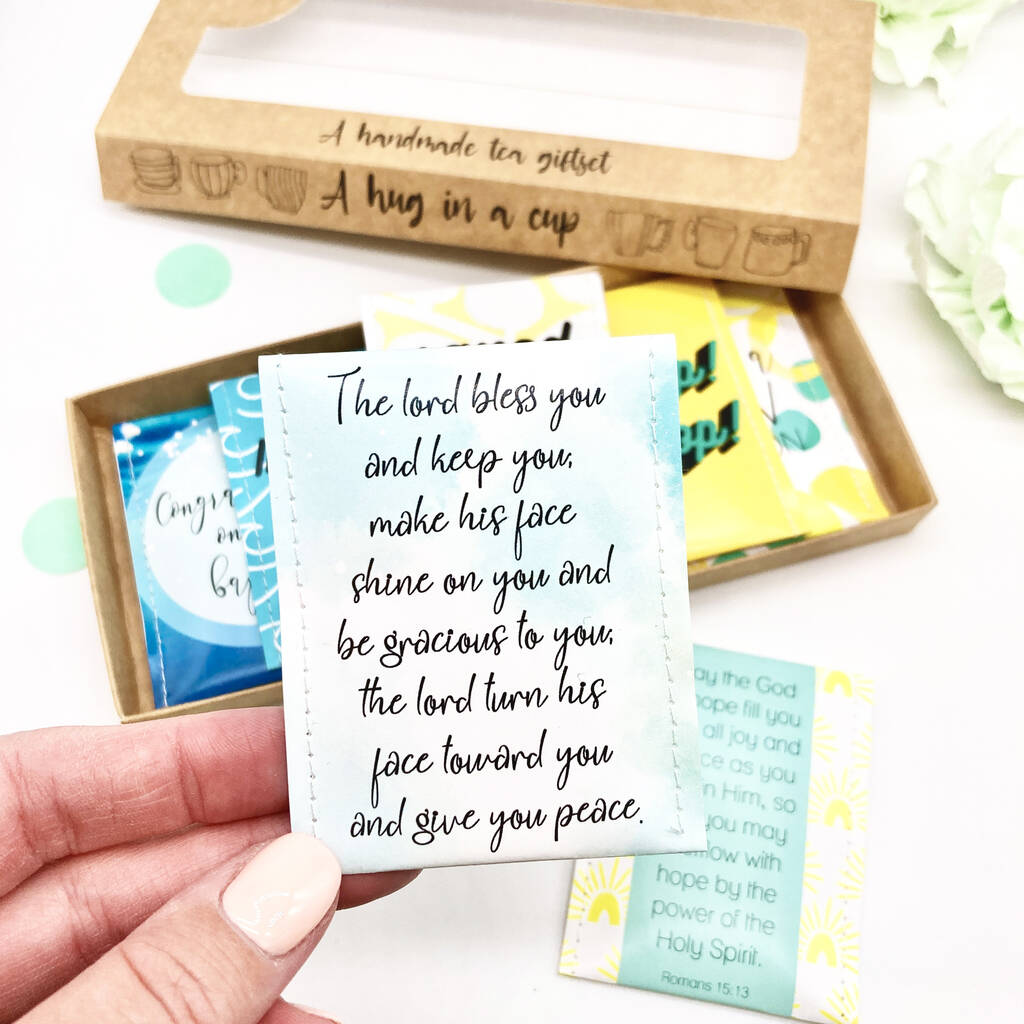 A handmade tea giftset
A hug in a cup
The lord bless you
and keep you;
make his face
shine on you and
be gracious to you;
the lord turn his
face toward you
and give you peace.
on
the God
fill you
all joy and
as you
in Him, so
you may
with
hope by the
power of the
Holy Spirit.
Romans 15:13